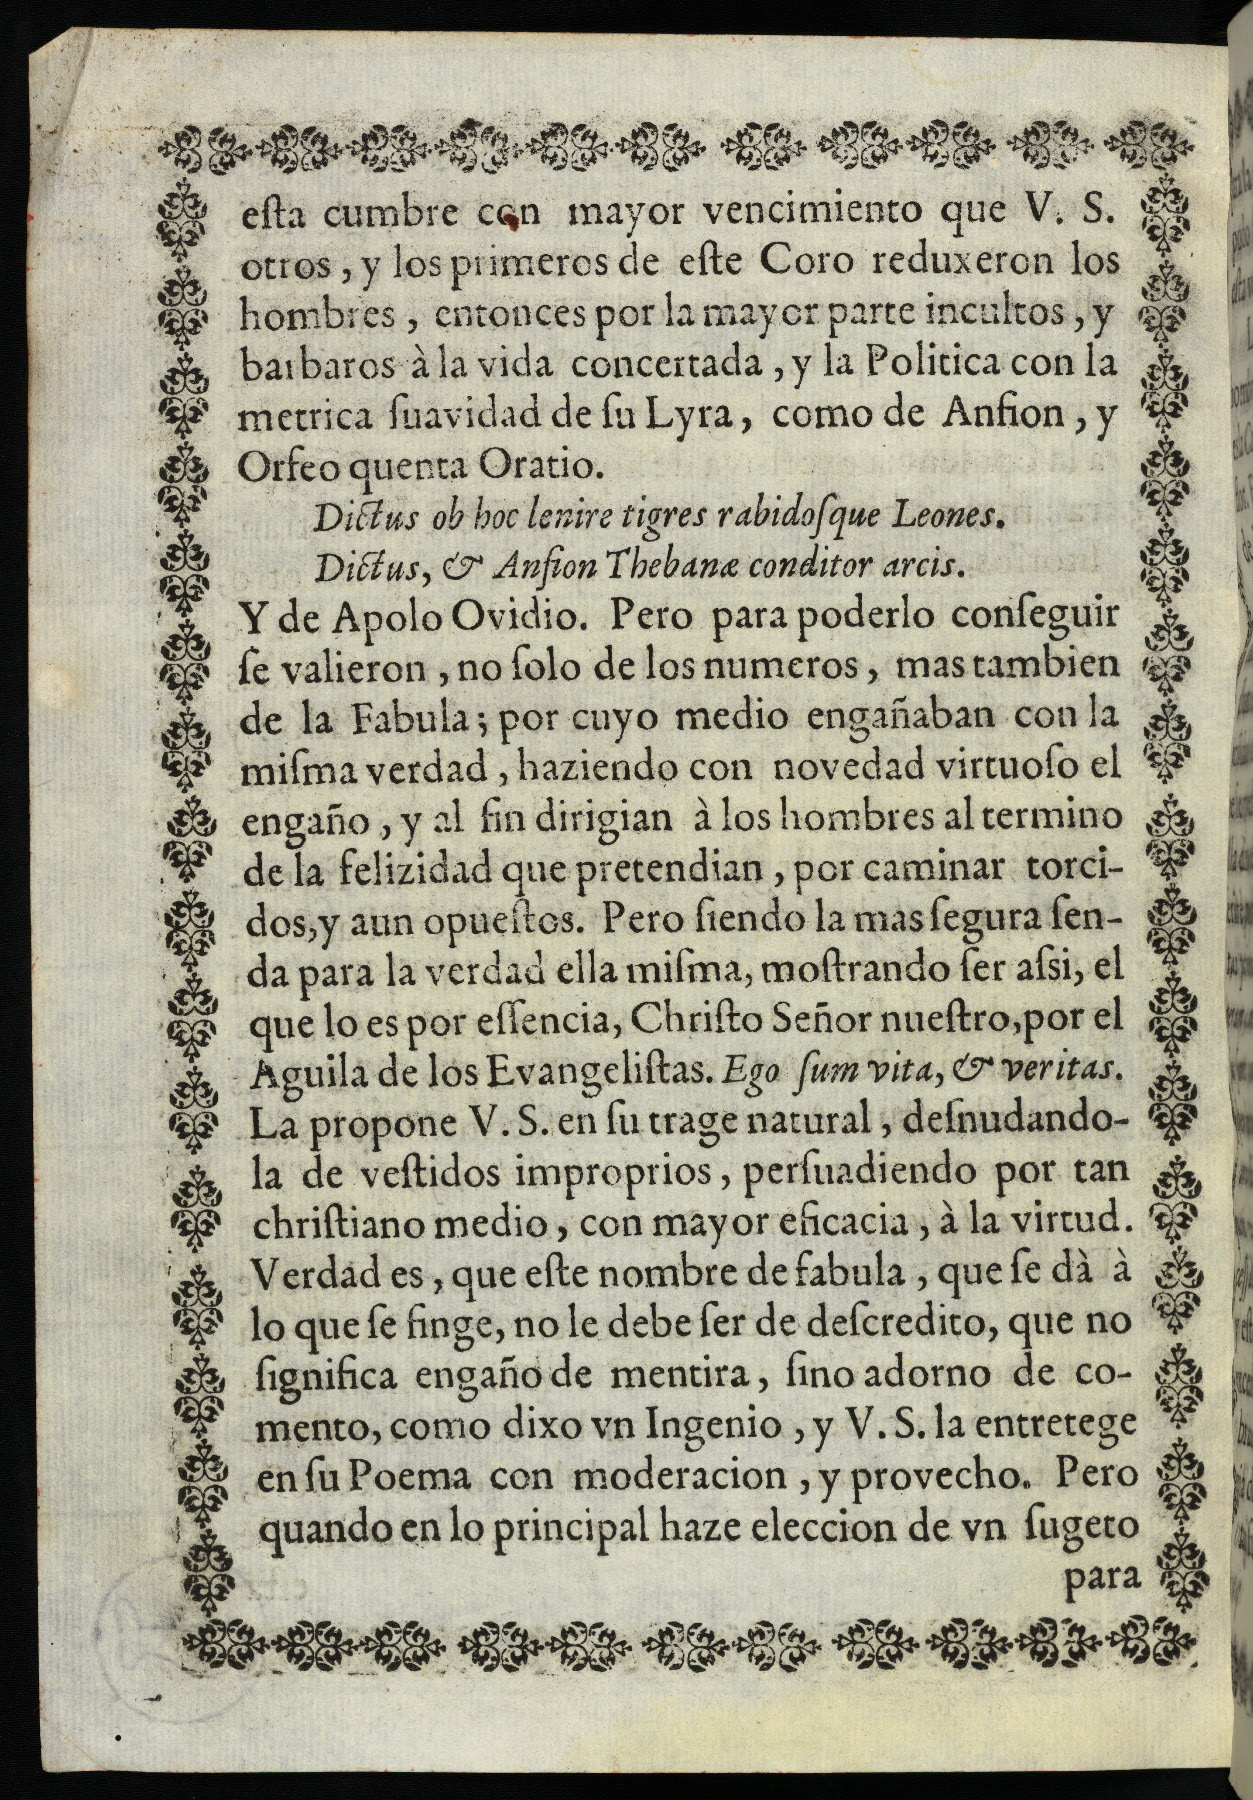 eſta cumbre con mayor vencimiento que V. S.
otros, y los primeros de eſte Coro reduxeron los
hombres, entonces por la mayor parte incultos, y
barbaros à la vida concertada, y la Politica con la
metrica ſuavidad de ſu Lyra, como de Anfion, y
Orfeo quenta Oratio.
Dictus ob hoc lenire tigres rabidoſque Leones.
Dictus, & Anfion Thebanæ conditor arcis.
Y de Apolo Ovidio. Pero para poderlo conſeguir
ſe valieron, no ſolo de los numeros, mas tambien
de la Fabula; por cuyo medio engañaban con la
miſma verdad, haziendo con novedad virtuoſo el
engaño, y al fin dirigian à los hombres al termino
de la felizidad que pretendian, por caminar torci-
dos, y aun opueſtos. Pero ſiendo la mas ſegura ſen-
da para la verdad ella miſma, moſtrando ſer aſsi, el
que lo es por eſſencia, Chriſto Señor nueſtro, por el
Aguila de los Evangeliſtas. Ego ſum vita, & veritas.
La propone V. S. en ſu trage natural, deſnudando-
la de veſtidos improprios, perſuadiendo por tan
chriſtiano medio, con mayor eficacia, à la virtud.
Verdad es, que eſte nombre de fabula, que ſe dà à
lo que ſe finge, no le debe ſer de deſcredito, que no
ſignifica engaño de mentira, ſino adorno de co-
mento, como dixo vn Ingenio, y V. S. la entretege
en ſu Poema con moderacion, y provecho. Pero
quando en lo principal haze eleccion de vn ſugeto
para